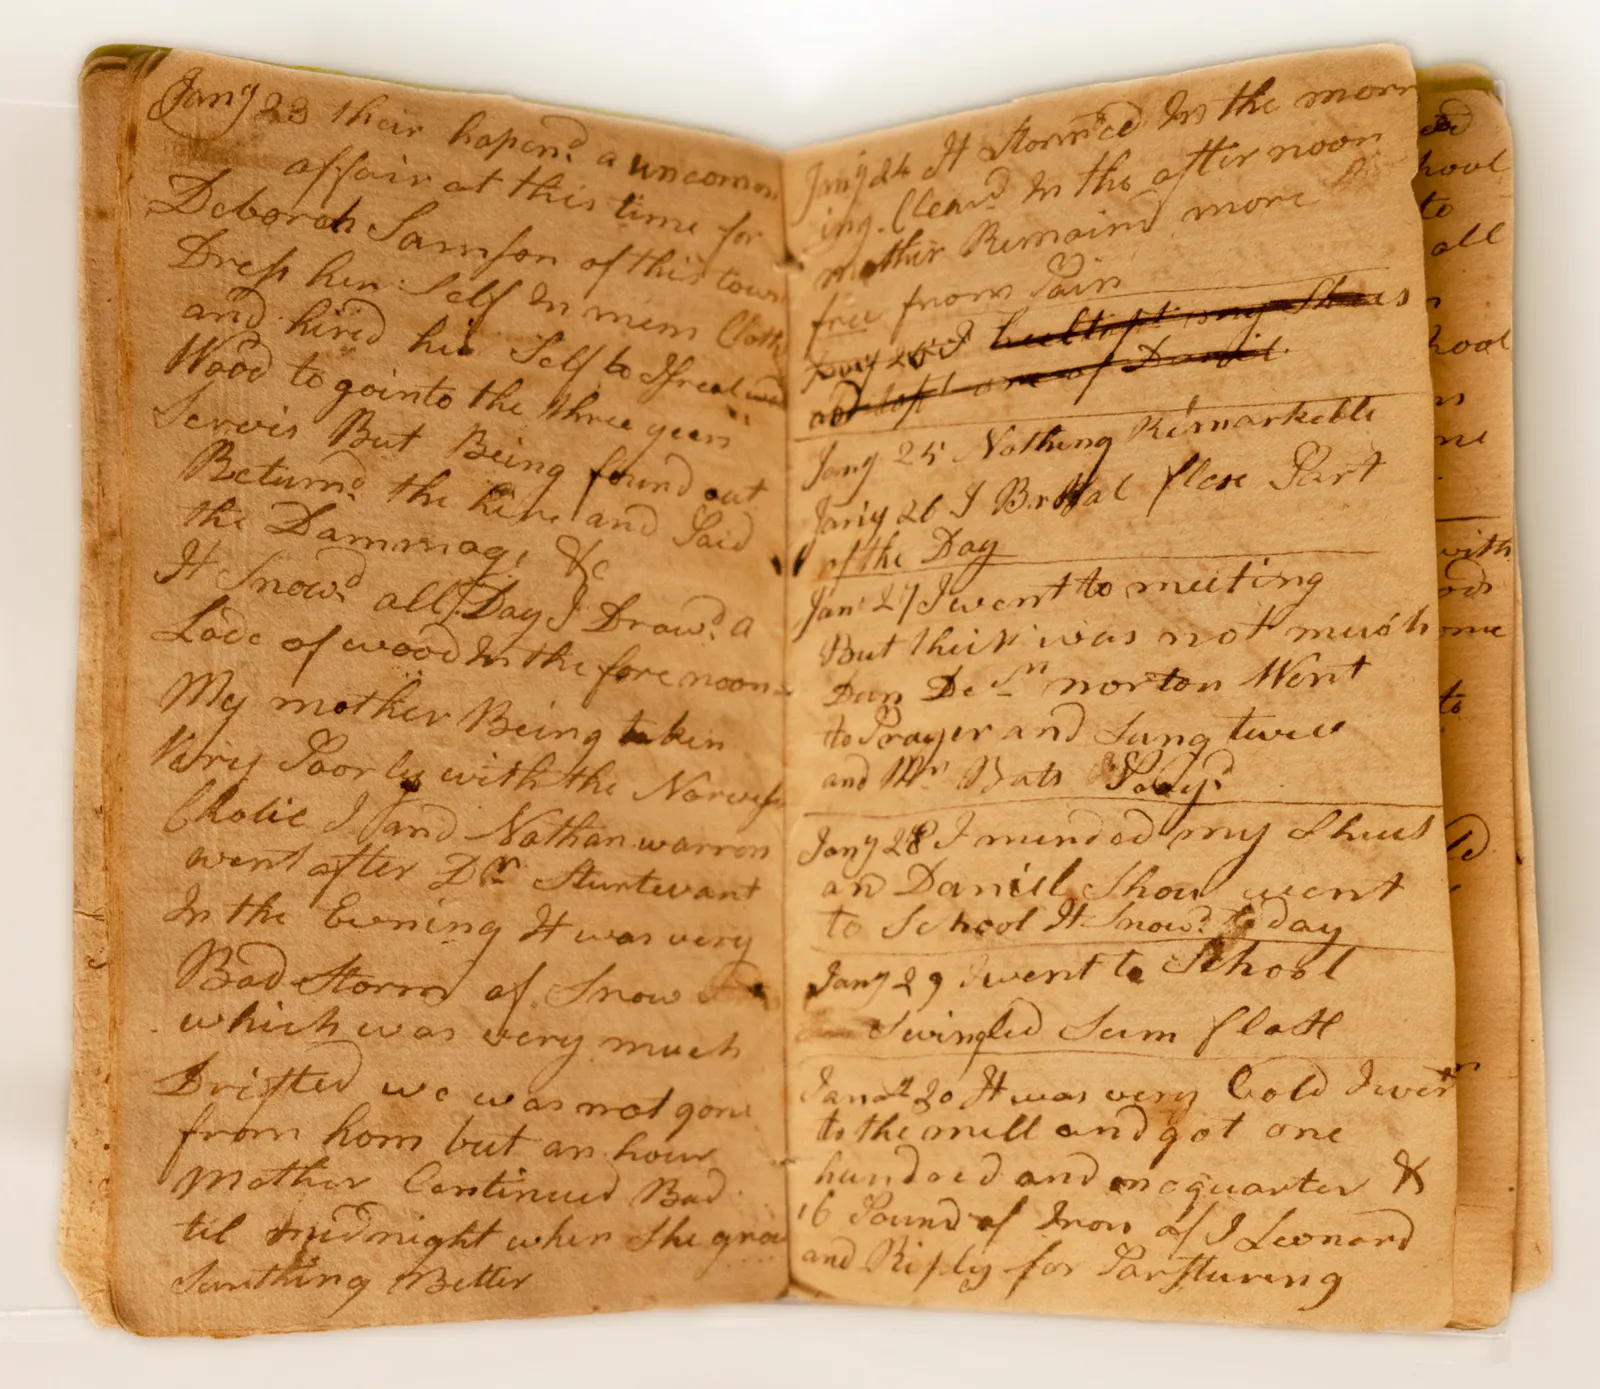 Jany 23 their hapend a uncommon
affair at this time for
Deborah Samson of this town
Dress her Self In mens Cloths
and hired her Self to Israel wood
Wood to go into the three years
Servis But Being found out
Returnd the hire and Paid
the Dammag, &c
It Snowd all Day I Drawd a
Lode of wood In the fore noon
My mother Being taken
Very Poorly with the
Cholic I and Nathan warren
went after Dr Sturtevant
In the Evening It was very
Bad Storm of Snow
which was very much
Drifted we was not gone
from hom but an hour
Mother Continued Bad
til midnight when She grow
Sumthing Better
Jany 24 It Stormed In the morn
ing. Cleard In the after noon
mother Remaind more
free from Pain
Jany 25 I my Shues
and one of Daniel
Jany 25 Nothing Remarkeble
Jany 26 I flax Part
of the Day
Jan 27 I went to meeting
But their was not much
Dun Dea norton Went
to Prayer and Sung twice
and Mr Bats
Jany 28 I minded my Shues
an Daniel Shaw went
to School It Snowd to day
Jany 29 I went to School
Swingled Sum flax
Jana 30 It was very Cold I went
to the mill and got one
hundred and one quarter &
16 Pound of Iron of I Leonard
and Riply for Parsturing
ed
hool
to
all
hool
ns
me
with
ome
to